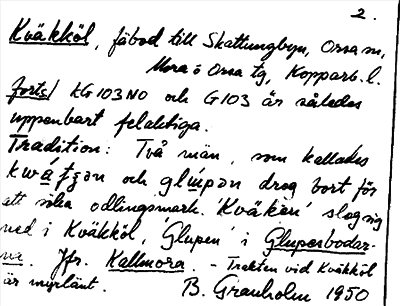 2.
Kväkköl, fäbod till Skattungbyn, Orsa sn,
Mora o Orsa tg, Kopparb. l.
forts/ KG103NO och G103 är således
uppenbart felaktiga.
Tradition: Två män, som kallades
och glúpən drog bort för
att söka odlingsmark. 'Kväken' slog sig
ned i Kväkköl, 'Glupen' i Glupesbodar-
na. Jfr. Kallmora. - Trakten vid Kväkköl
är myrlänt. B. Granholm 1950